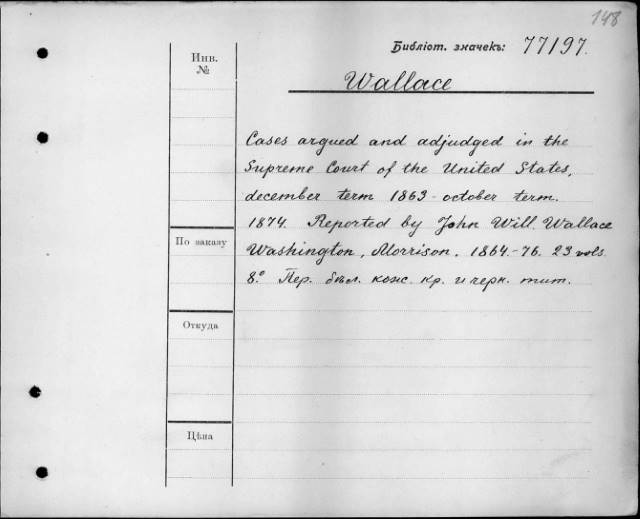 148
Библіот. значекъ: 77197.
Инв.
№
Wallace
Cases argued and adjudged in the
Supreme Court of the United States,
december term 1863 - october term.
1874. Reported by John Will. Wallace
Washington, Morrison. 1864.-76. 23 vols.
8.° Пер. бѣл. кожс. кр. и черн. тит.
По заказу
Откуда
Цѣна